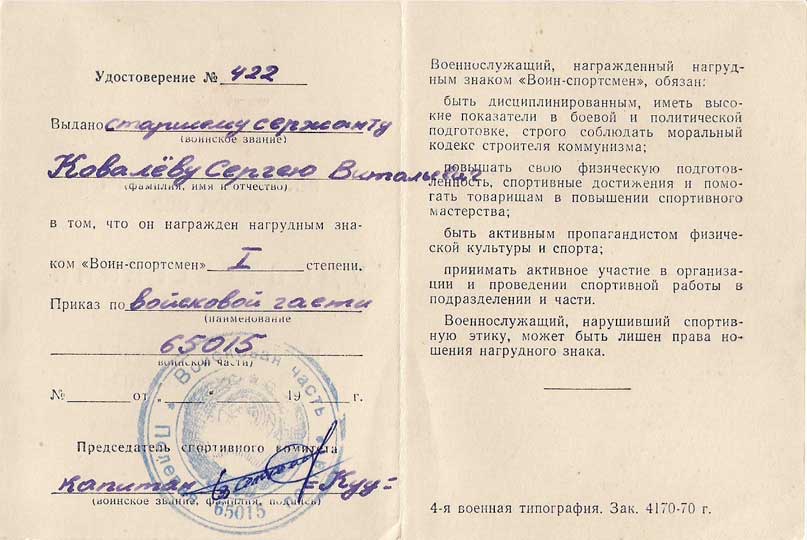 Удостоверение № 422
Выдано старшему сержанту
(воинское звание)
Ковалёву Сергею Витальевич
(фамилия, имя и отчество)
в том, что он награжден нагрудным зна-
ком «Воин-спортсмен» I степени.
Приказ по войсковой части
(наименование
65015
воинской части)
№ от „ “ 19 г.
Председатель спортивного комитета
капитан =Куу=
(воинское звание, фамилия, подпись)
Войсковая часть
65015
Военнослужащий, награжденный нагруд-
ным знаком «Воин-спортсмен», обязан:
быть дисциплинированным, иметь высо-
кие показатели в боевой и политической
подготовке, строго соблюдать моральный
кодекс строителя коммунизма;
повышать свою физическую подготов-
ленность, спортивные достижения и помо-
гать товарищам в повышении спортивного
мастерства;
быть активным пропагандистом физиче-
ской культуры и спорта;
принимать активное участие в организа-
ции и проведении спортивной работы в
подразделении и части.
Военнослужащий, нарушивший спортив-
ную этику, может быть лишен права но-
шения нагрудного знака.
4-я военная типография. Зак. 4170-70 г.